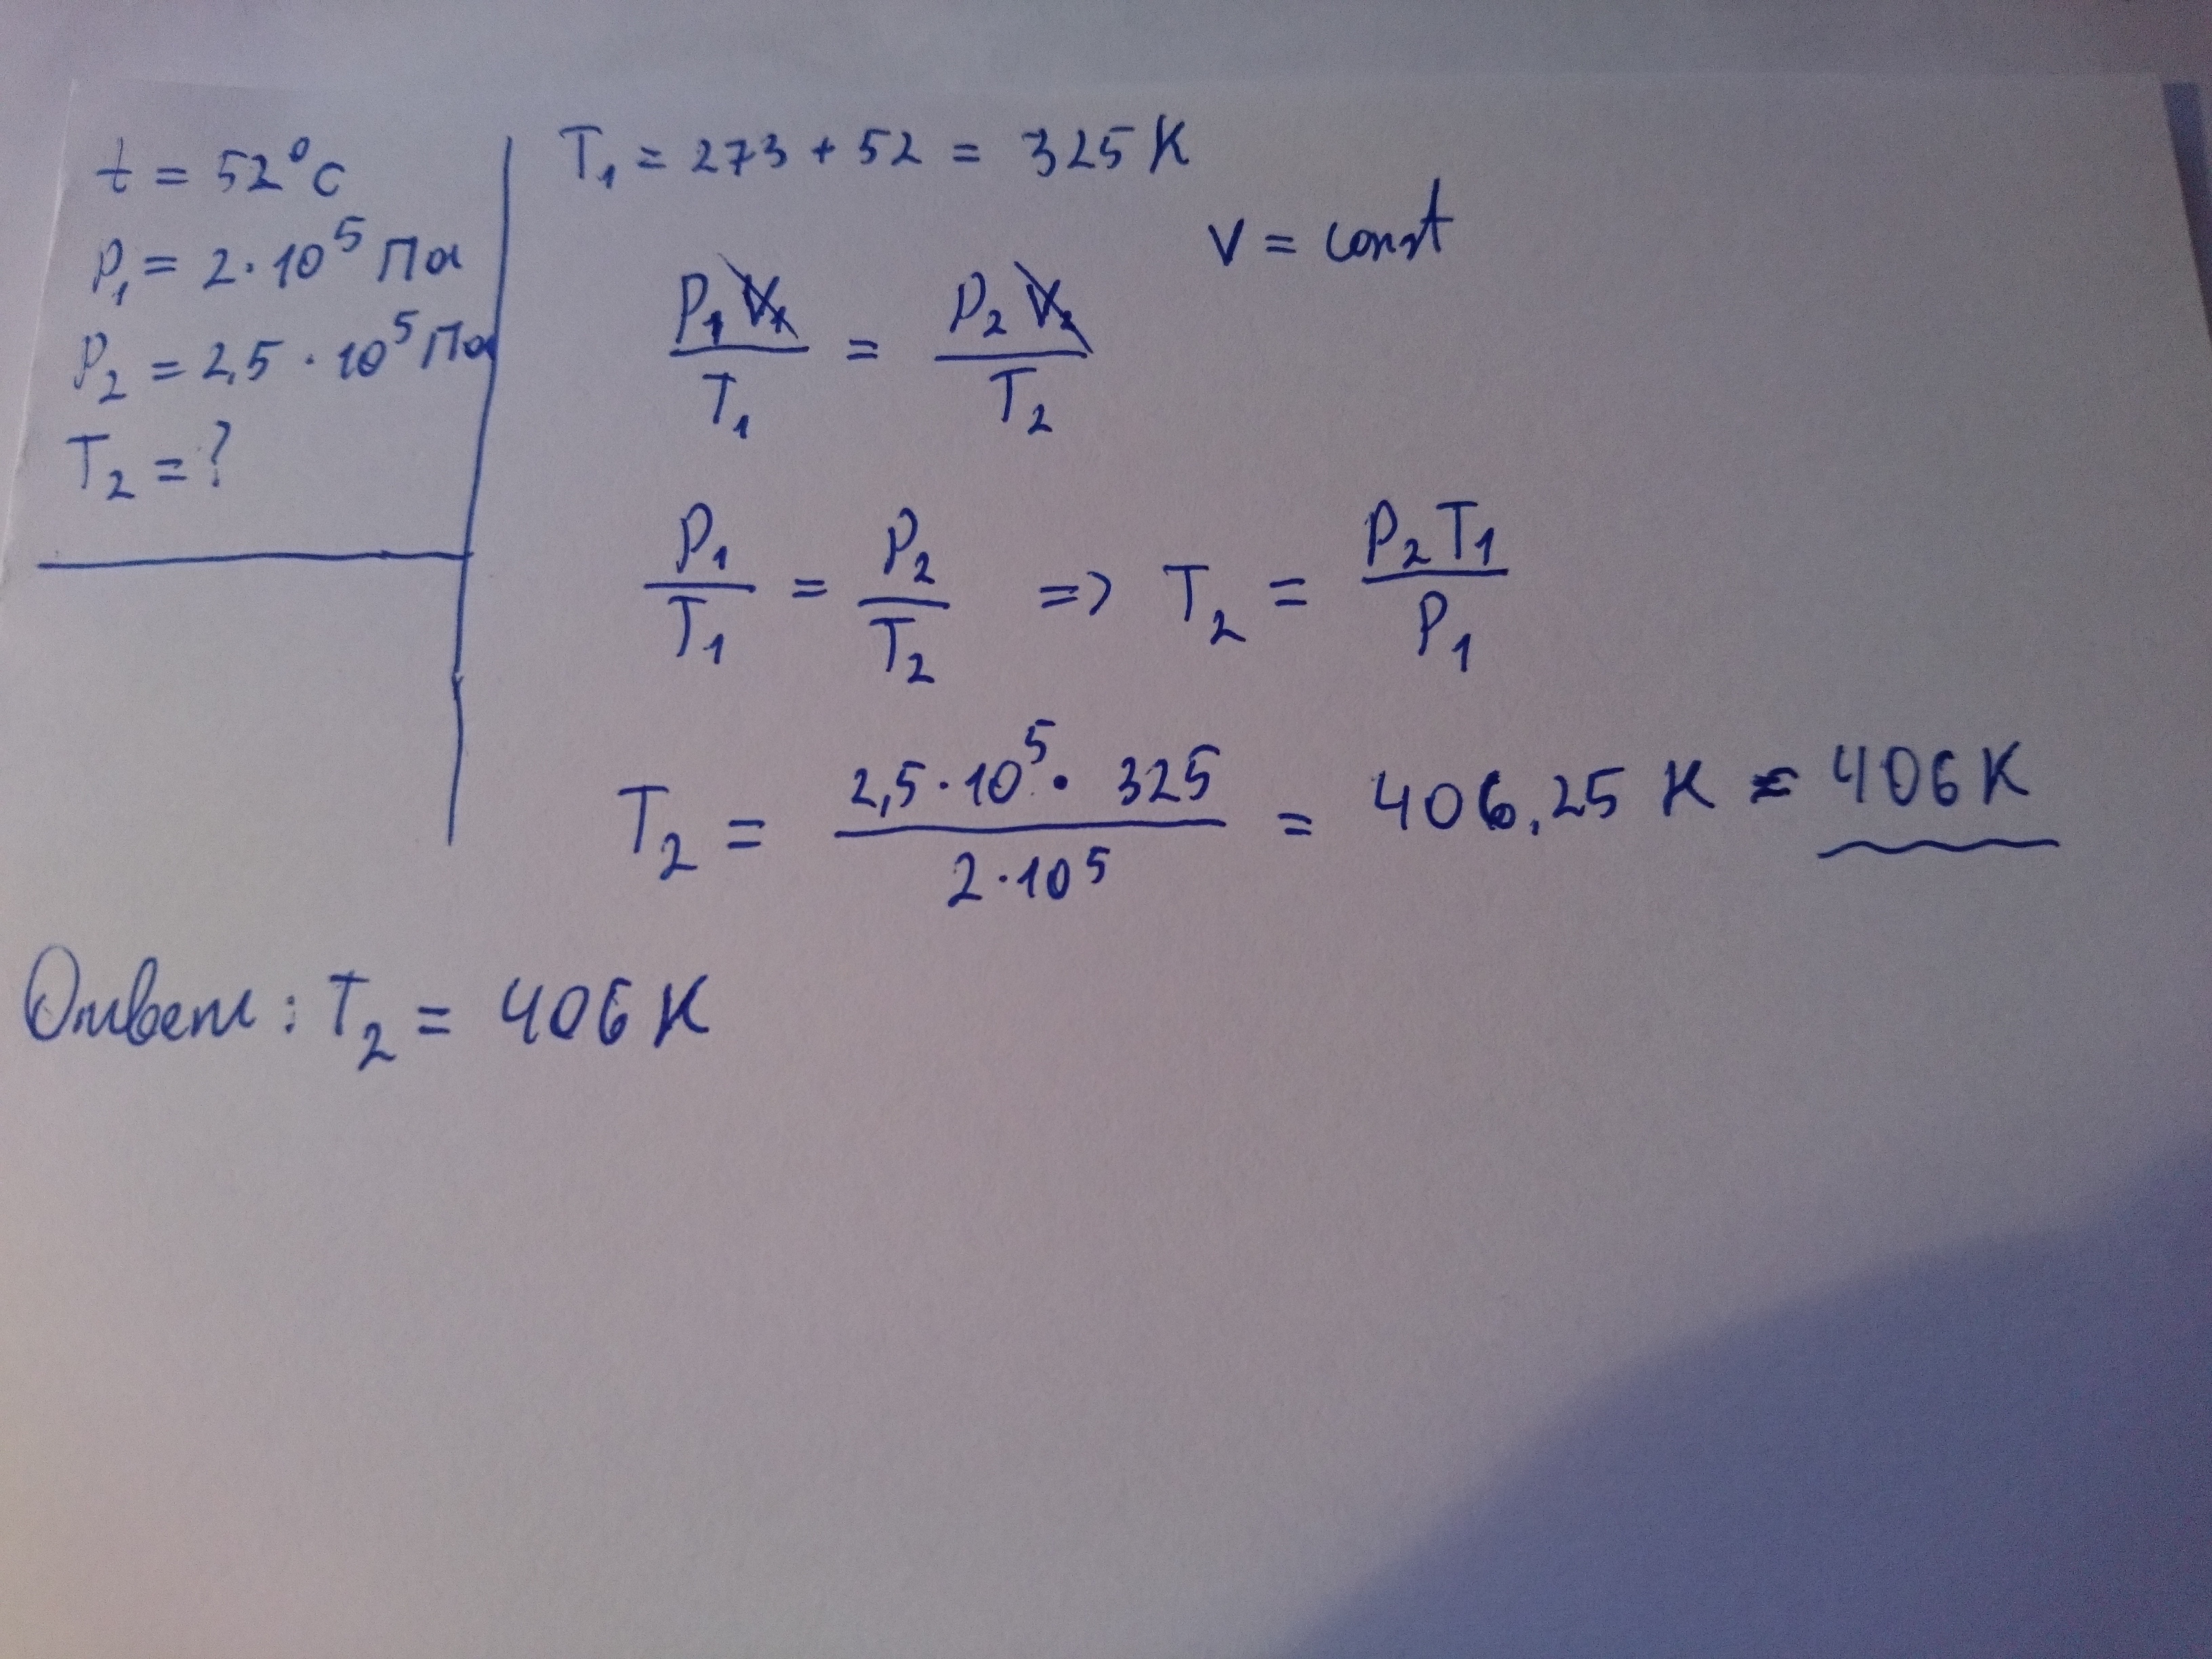 t = 52°C
P₁ = 2·10⁵ Па
P₂ = 2,5·10⁵ Па
T₂ = ?
T₁ = 273 + 52 = 325 K
V = const
P₁V₁/T₁ = P₂V₂/T₂
P₁/T₁ = P₂/T₂ => T₂ = P₂T₁/P₁
T₂ = 2,5·10⁵· 325/2·10⁵ = 406,25 K = 406 K
Ответ: T₂ = 406 K